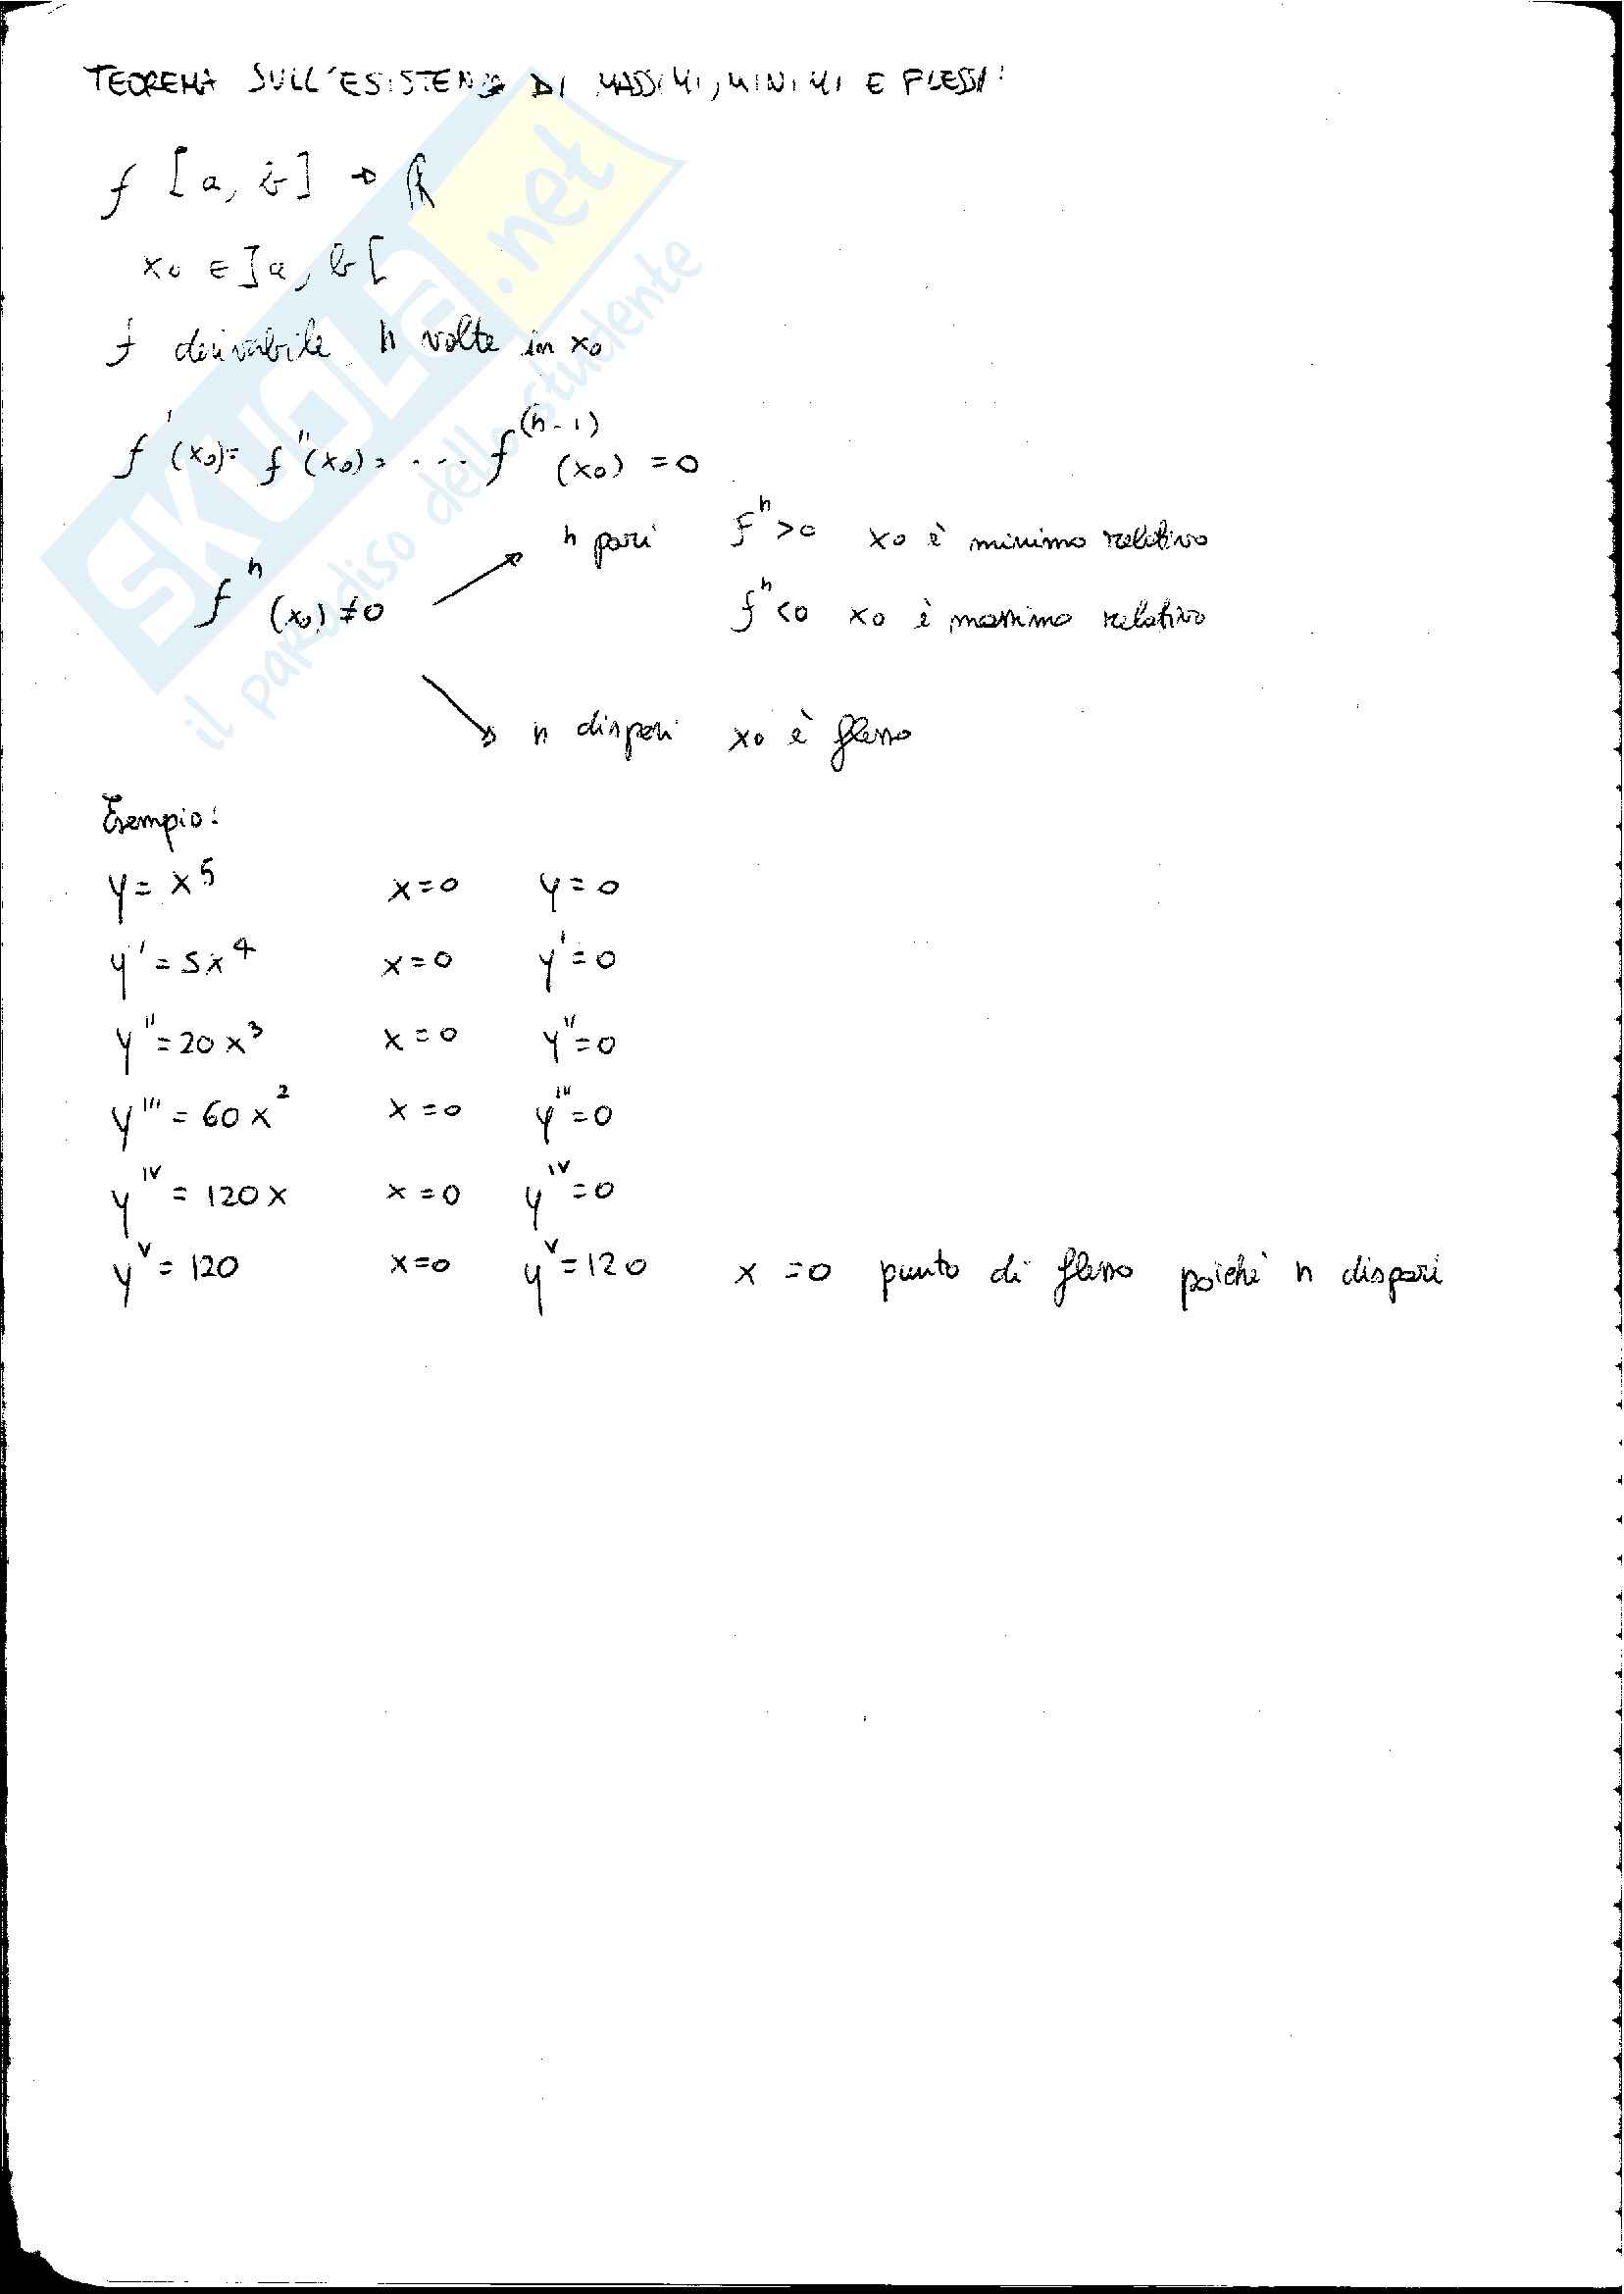 TEOREMA SULL'ESISTENZA DI MASSIMI, MINIMI E FLESSI:
f [a, b] → ℝ
x₀ ∈ ]a, b[
f derivabile n volte in x₀
f'(x₀) = f''(x₀) = ... f^(n-1) (x₀) = 0
n pari f^n > 0 x₀ è minimo relativo
f^n (x₀) ≠ 0
f^n < 0 x₀ è massimo relativo
n dispari x₀ è flesso
Esempio:
y = x⁵ x = 0 y = 0
y' = 5x⁴ x = 0 y' = 0
y'' = 20x³ x = 0 y'' = 0
y''' = 60x² x = 0 y''' = 0
y^IV = 120x x = 0 y^IV = 0
y^V = 120 x = 0 y^V = 120 x = 0 punto di flesso poichè n dispari
SKUOLA.net
il paradiso dello studente